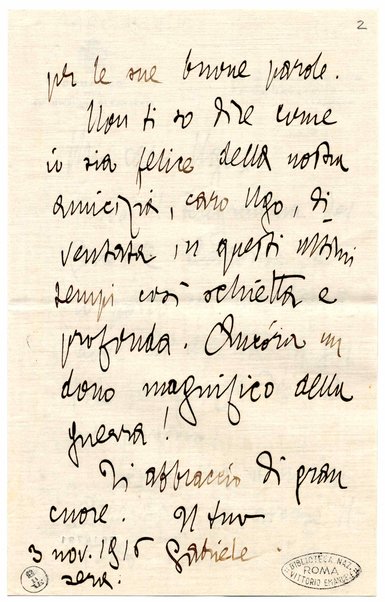 2
per le sue buone parole.
Non ti so dire come
io sia felice della nostra
amicizia, caro Ugo, di
ventata in questi ultimi
tempi così schietta e
profonda. Ancóra un
dono magnifico della
guerra!
Ti abbraccio di gran
cuore. Il tuo
3 nov. 1916 Gabriele.
sera.
BIBLIOTECA NAZ.
ROMA
VITTORIO EMANUELE